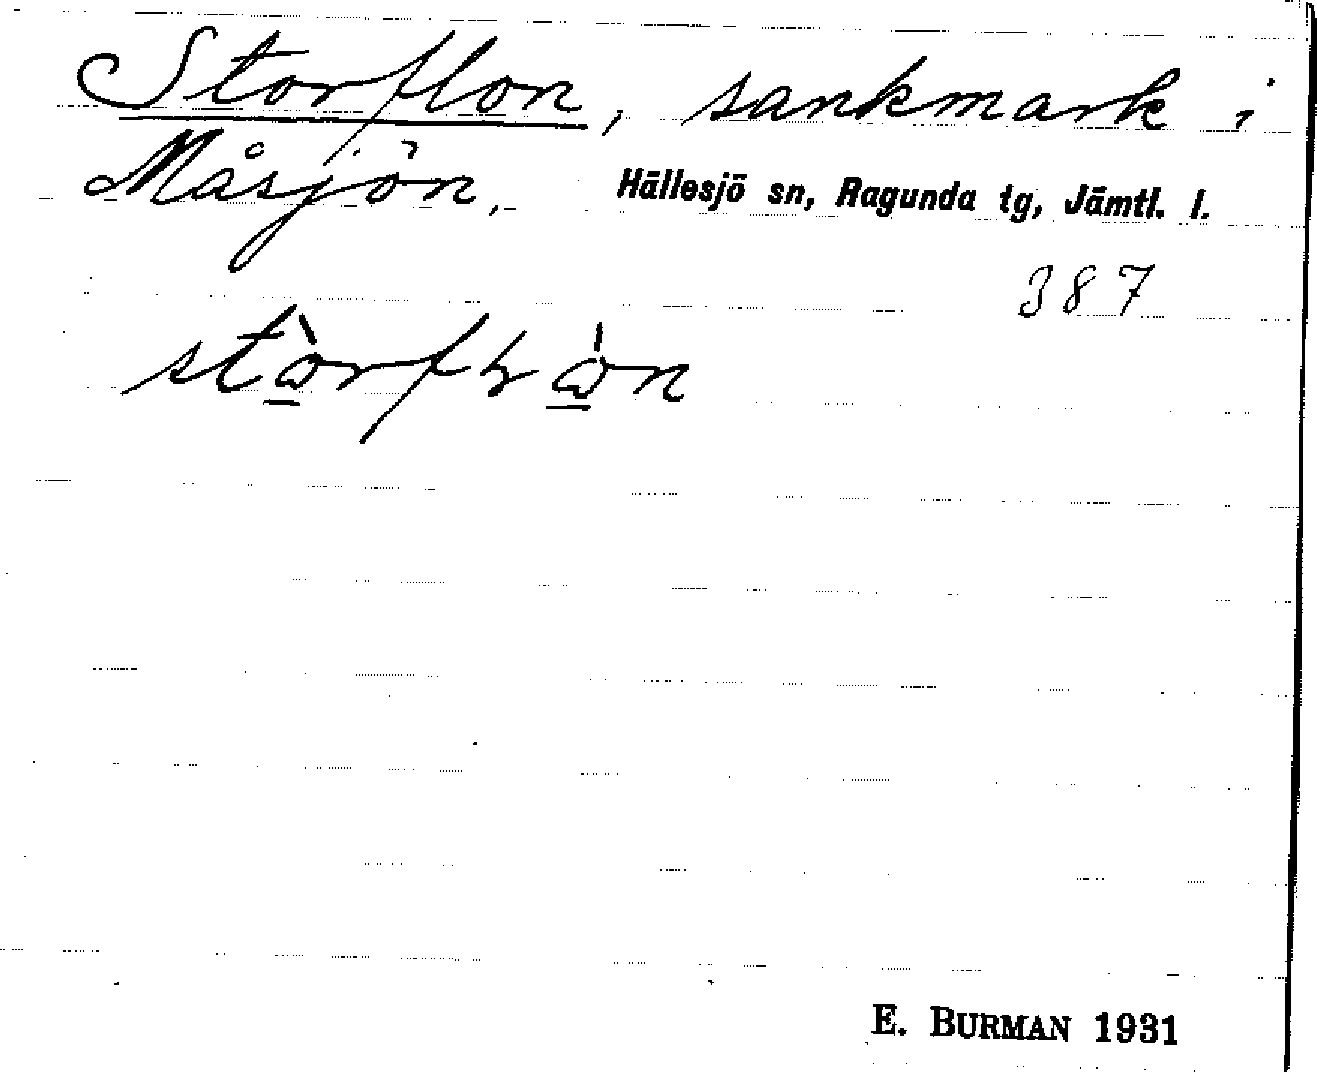 Storflon, sankmark i
Måsjön, Hällesjö sn, Ragunda tg, Jämtl. l.
387
E. BURMAN 1931